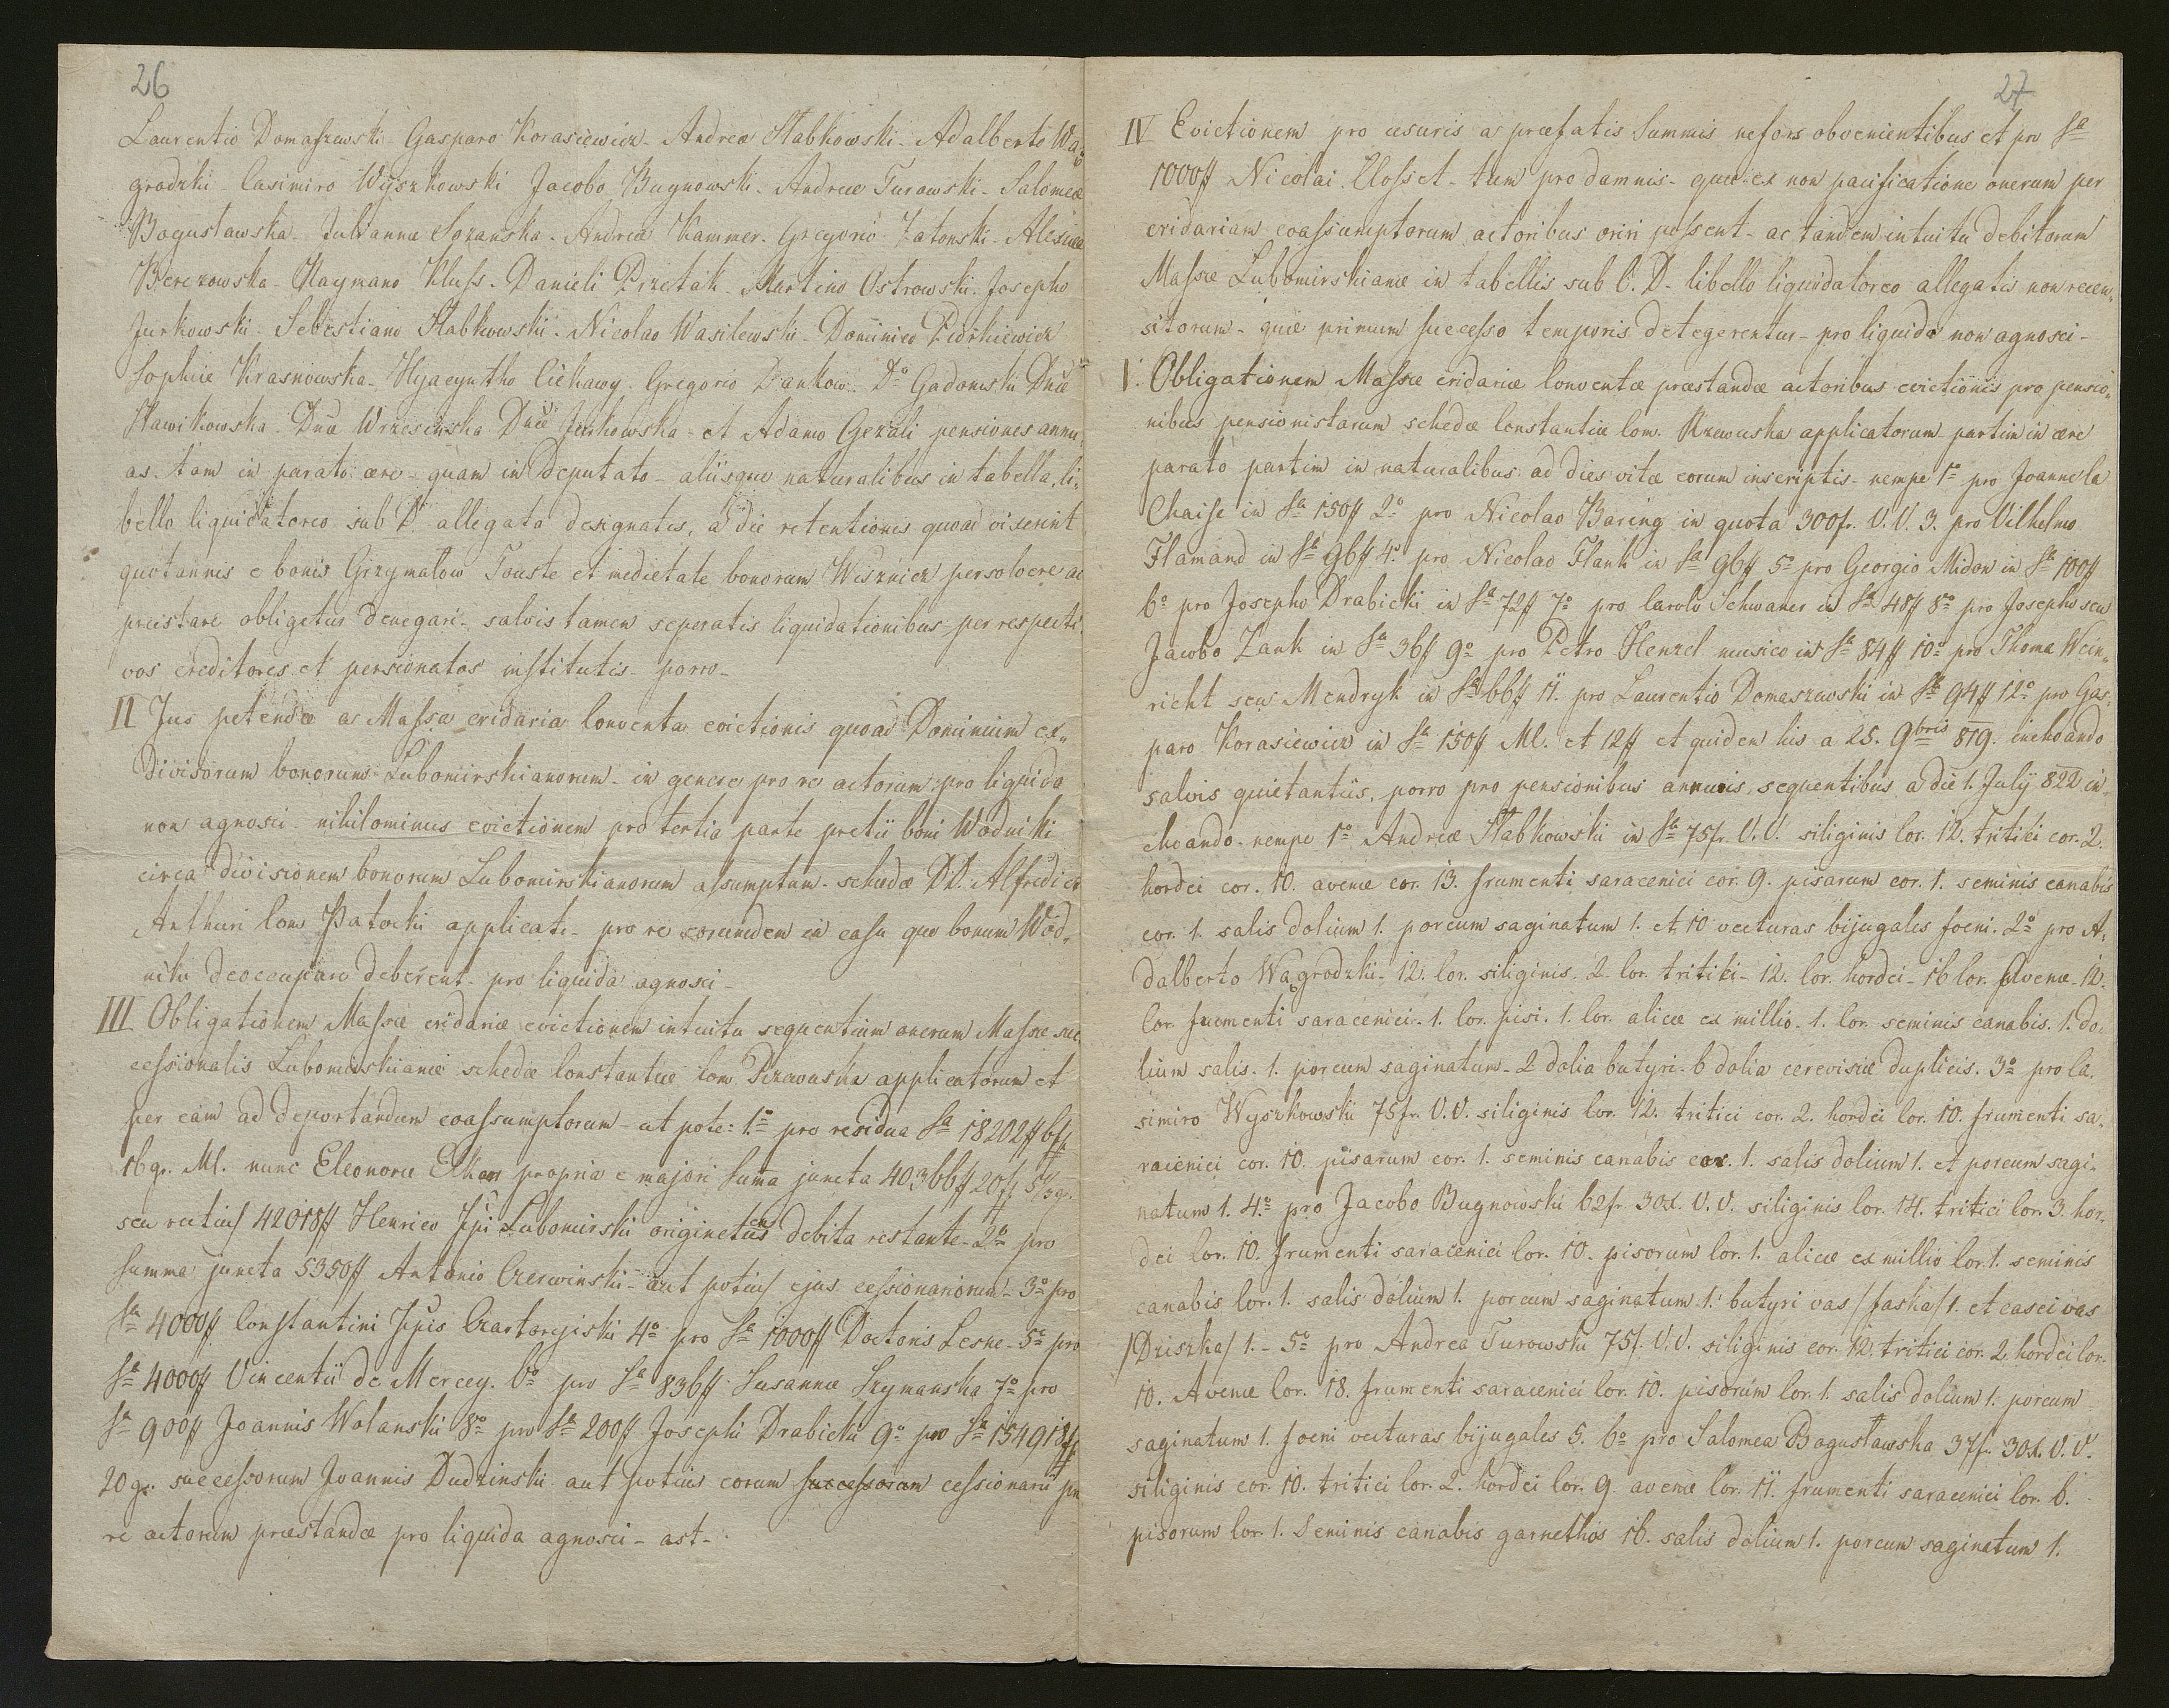 26
Laurentio Domaszewski - Gasparo Korasiewicz - Andreæ Stabkowski - Adalberto Wą,
grodzki - Casimiro Wyszkowski Jacobo Bugnowski - Andreæ Turowski - Salomeæ
Bogusławska - Julianna Sozanska - Andreæ Kammer - Gregorio Zatonski -
Berezowska - Kaymano Kluss - Danieli Przetak - Martino Ostrowski - Josepho
Jurkowski - Sebestiano Stabkowski - Nicolao Wasilewski - Dominico Piorkiewicz
Sophiæ Krasnowska - Hyacyntho Ciekawy - Gregorio Dankow - Do Gadomski Dnæ
Sławikowska - Dnæ Wrzesinska Dnæ Jurkowska - et Adamo Gezali pensiones annu,
as - tam in parato ære - quam in Deputato - aliisque naturalibus in tabella, li,
bello liquidatoreo sub D. allegata designatis, a die retentionis quoad vixerint
quotannis e bonis Grzymałow Touste et medietate bonorum Wisznicz persolvere ac
præstare obligetur denegari - salvis tamen seperatis liquidationibus - per respecti,
vos creditores et pensionatos institutis - porro -
II Jus petendæ a Massa cridaria conventa evictionis quoad Dominium ex,,
divisorum bonorum Lubomirskianorum - in genere pro re actorum pro liquida
non agnosci - nihilominus evictionem pro tertia parte pretii boni Wodniki
circa divisionem bonorum Lubomirskianorum assumptum - schedæ DD. Alfredi et
Arthuri Com Potocki applicati - pro re eorumdem in casu quo bonum Wod,
niki deoccupare deberent - pro liquida agnosci -
III Obligationem Massæ cridariæ evictionem intuitu sequentium onerum Massæ suc
cessionalis Lubomirskianæ schedæ Constantiæ Com Rzewuska applicatorum et
per eam ad deportandum coassumptorum - ut pote: 1o pro residua Sa 18202ff 6ff
16gr. Ml. nunc Eleonoræ propria e majori suma juncta 40366ff 20ff 5 1/3 gr.
seu rectius 42018ff Henrico Ppi Lubomirski originetus debita restante - 2o pro
summa juncta 5350ff Antonio Czerwinski - aut potius ejus cessionariorum - 3o pro
Sa 4000ff Constantini Ppis Czartoryiski 4o pro Sa 1000ff Doctoris Leske - 5o pro
Sa 4000ff Vincentii de Mercey. 6o pro Sa 836ff Susannæ Szymanska 7o pro
Sa 900ff Joannis Wolanski 8o pro Sa 200ff Josephi Drabicki 9o pro Sa 154918ff
20gr. successorum Joannis Dudzinski aut potius eorum successorum cessionarii pro
re actorum præstandæ pro liquida agnosci - ast -
27
IV Evictionem pro usuris a præfatis Summis nefors obvenientibus et pro Sa
1000ff Nicolai Closset - tum pro damnis - quæ ex non pacificatione onerum per
cridariam coassumptorum actoribus oriri possent - ac tandem intuitu debitorum
Massæ Lubomirskianæ in tabellis sub C. D. libello liquidatoreo allegatis non recen,
sitorum - quæ primum successo temporis detegerentur - pro liquida non agnosci -
V. Obligationem Massæ cridariæ Conventæ præstandæ actoribus evictionis pro pensio,,
nibus pensionistarum schedæ Constantiæ Com. Rzewuska applicatorum partim in ære
parato partim in naturalibus ad dies vitæ eorum inscriptis - nempe 1o pro Joanne la
Chaise in Sa 150ff 2o pro Nicolao Baring in quota 300fr. V. V. 3. pro Vilhelmo
Flamand in Sa 96ff 4o pro Nicolao Flank in Sa 96ff 5o pro Georgio Midon in Sa 100ff
6o pro Josepho Drabicki in Sa 72ff 7o pro Carolo Schwaner in Sa 48ff 8o pro Josepho seu
Jacobo Zank in Sa 36ff 9o pro Petro Henzel musico in Sa 84ff 10o pro Thoma Wein,,
richt seu Mendryk in Sa 66ff 11. pro Laurentio Domaszewski in Sa 94ff 12o pro Gas,
paro Korasiewicz in Sa 150ff Ml. et 12ff et quidem his a 25. 9bris 819. inchoando
salvis quietantiis, porro pro pensionibus annuis, sequentibus a die 1. July 822 in,
choando - nempe 1o Andreæ Stabkowski in Sa 75fr. V. V. siliginis Cor. 12. tritici cor. 2.
hordei cor. 10. avenæ cor. 13. frumenti saracenici cor. 9. pisarum cor. 1. seminis canabis
cor. 1. salis dolium 1. porcum saginatum 1. et 10 vecturas bijugales foeni. 2o pro A,
dalberto Wągrodzki - 12. Cor. siliginis. 2. Cor. tritici - 12. Cor. hordei - 16 Cor. Avenæ - 12.
Cor. frumenti saracenici - 1. Cor. pisi. 1. Cor. alicæ ex millio - 1. Cor. seminis canabis. 1. do,
lium salis. 1. porcum saginatum - 2 dolia butyri - 6 dolia cerevisiæ duplicis. 3o pro Ca,
simiro Wyszkowski 75fr. V. V. siliginis Cor. 12. tritici cor. 2. hordei Cor. 10. frumenti sa,
racenici cor. 10. pisarum cor. 1. seminis canabis cor. 1. salis dolium 1. et porcum sagi,
natum 1. 4o pro Jacobo Bugnowski 62fr. 30x. V. V. siliginis Cor. 14. tritici Cor. 3. hor,
dei Cor. 10. frumenti saracenici Cor. 10. pisorum Cor. 1. alicæ ex millio Cor. 1. seminis
canabis Cor. 1. salis dolium 1. porcum saginatum 1. butyri vas /faska/ 1. et casei vas
/Dziszka/ 1. - 5o pro Andrea Turowski 75f. V. V. siliginis cor. 12. tritici cor. 2. hordei Cor.
10. Avenæ Cor. 18. frumenti saracenici Cor. 10. pisorum Cor. 1. salis dolium 1. porcum
saginatum 1. foeni vecturas bijugales 5. 6o pro Salomea Bogusławska 37fr. 30x. V. V.
siliginis cor. 10. tritici Cor. 2. hordei Cor. 9. avenæ Cor. 11. frumenti saracenici Cor. 6.
pisorum Cor. 1. Seminis canabis garnethos 16. salis dolium 1. porcum saginatum 1.